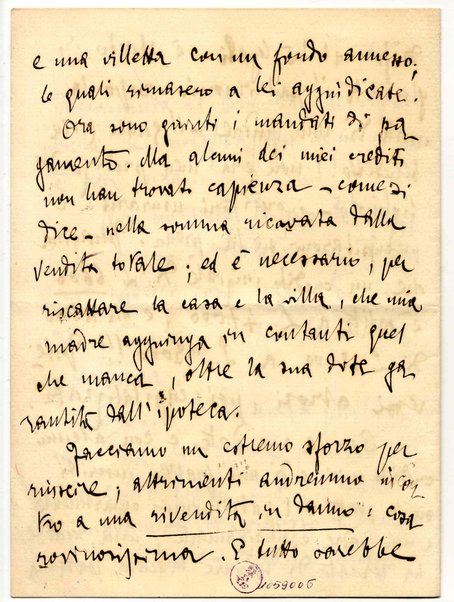 e una villetta con un fondo annesso;
le quali rimasero a lei aggiudicate.
Ora sono giunti i mandati di pa
gamento. Ma alcuni dei miei crediti
non han trovato capienza – come si
dice – nella somma ricavata dalla
vendita totale; ed è necessario, per
riscattare la casa e la villa, che mia
madre aggiunga in contanti quel
che manca, oltre la sua dote ga
rantita dall'ipoteca.
Facciamo un estremo sforzo per
riuscire; altrimenti andremmo incon
tro a una rivendita in danno: cosa
rovinosissima. E tutto sarebbe
1059006